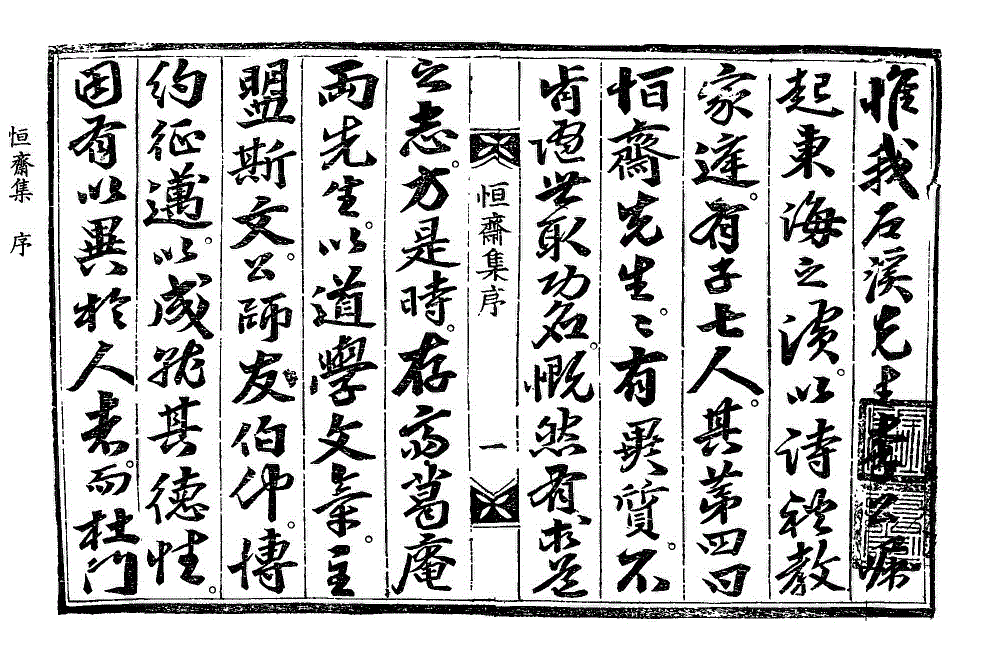 惟我石溪先生公崛
起東海之濱。以詩禮教
家庭。有子七人。其第四曰
恒齋先生。〻有異質。不
肯隨世取功名。慨然有求道
恒齋集序 一
之志。方是時。存齋葛庵
兩先生。以道學文章。主
盟斯文。公師友伯仲。博
約征邁。以成就其德性。
固有以異於人者。而杜門
恒齋集 序